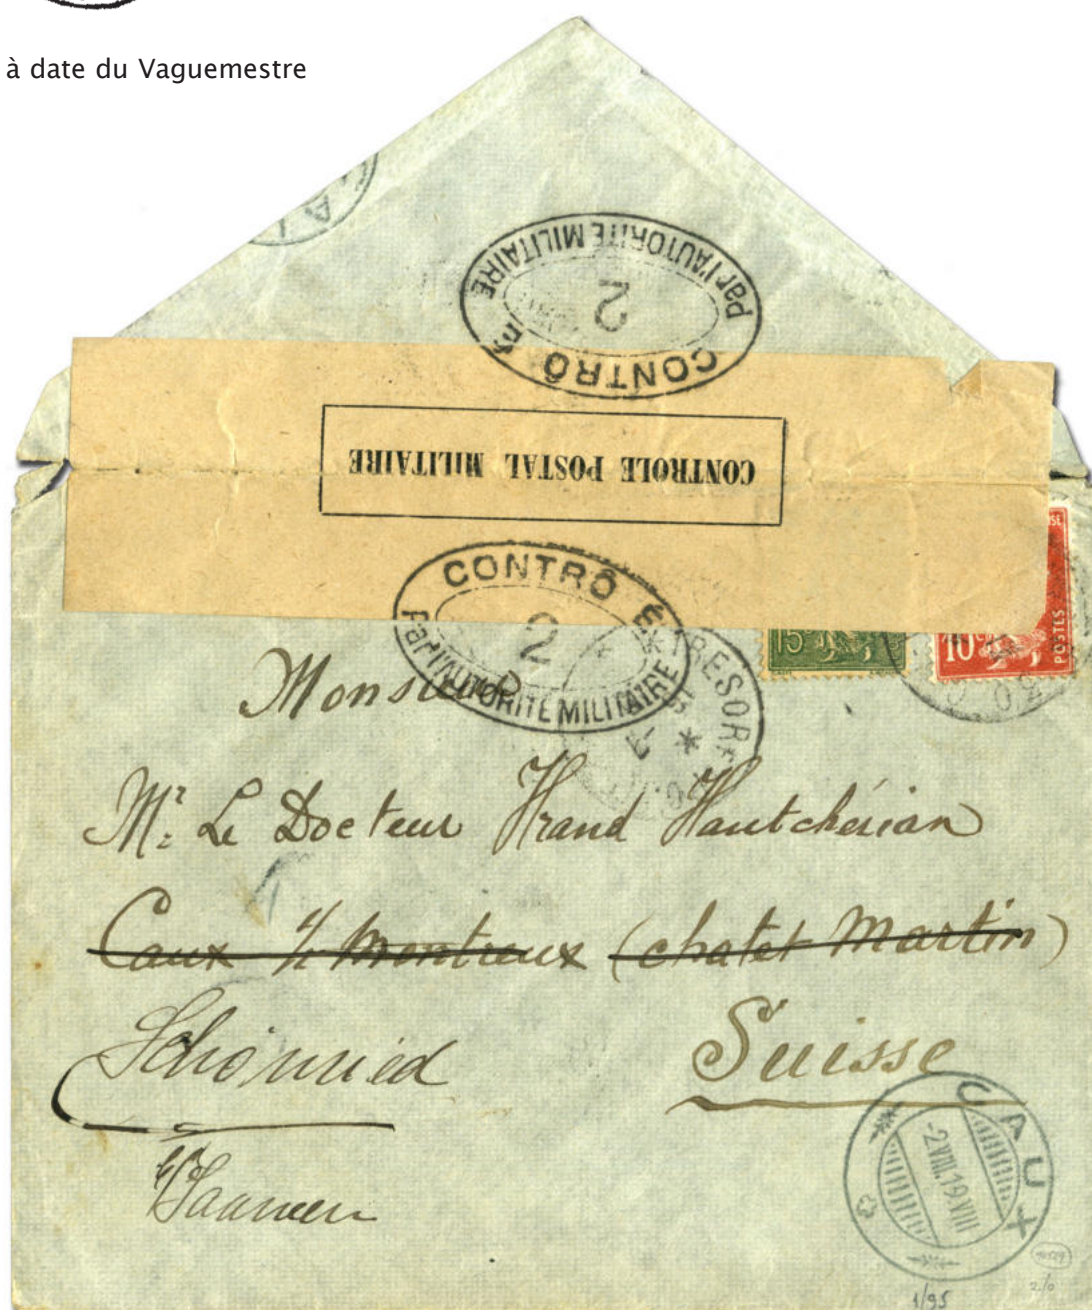 à date du Vaguemestre
CONTRÔ É
Par l'AUTORITÉ MILITAIRE
2
CONTROLE POSTAL MILITAIRE
CONTRÔ É
2
Par l'AUTORITÉ MILITAIRE
TRESOR
15
10c
POSTES
Monsieur
Mr. Le Docteur Hrand Hautchérian
Caux s/ Montreux (chalet Martin)
Schönried Suisse
b/Saanen
CAUX
-2.VIII.19.VIII
1/95
2/0